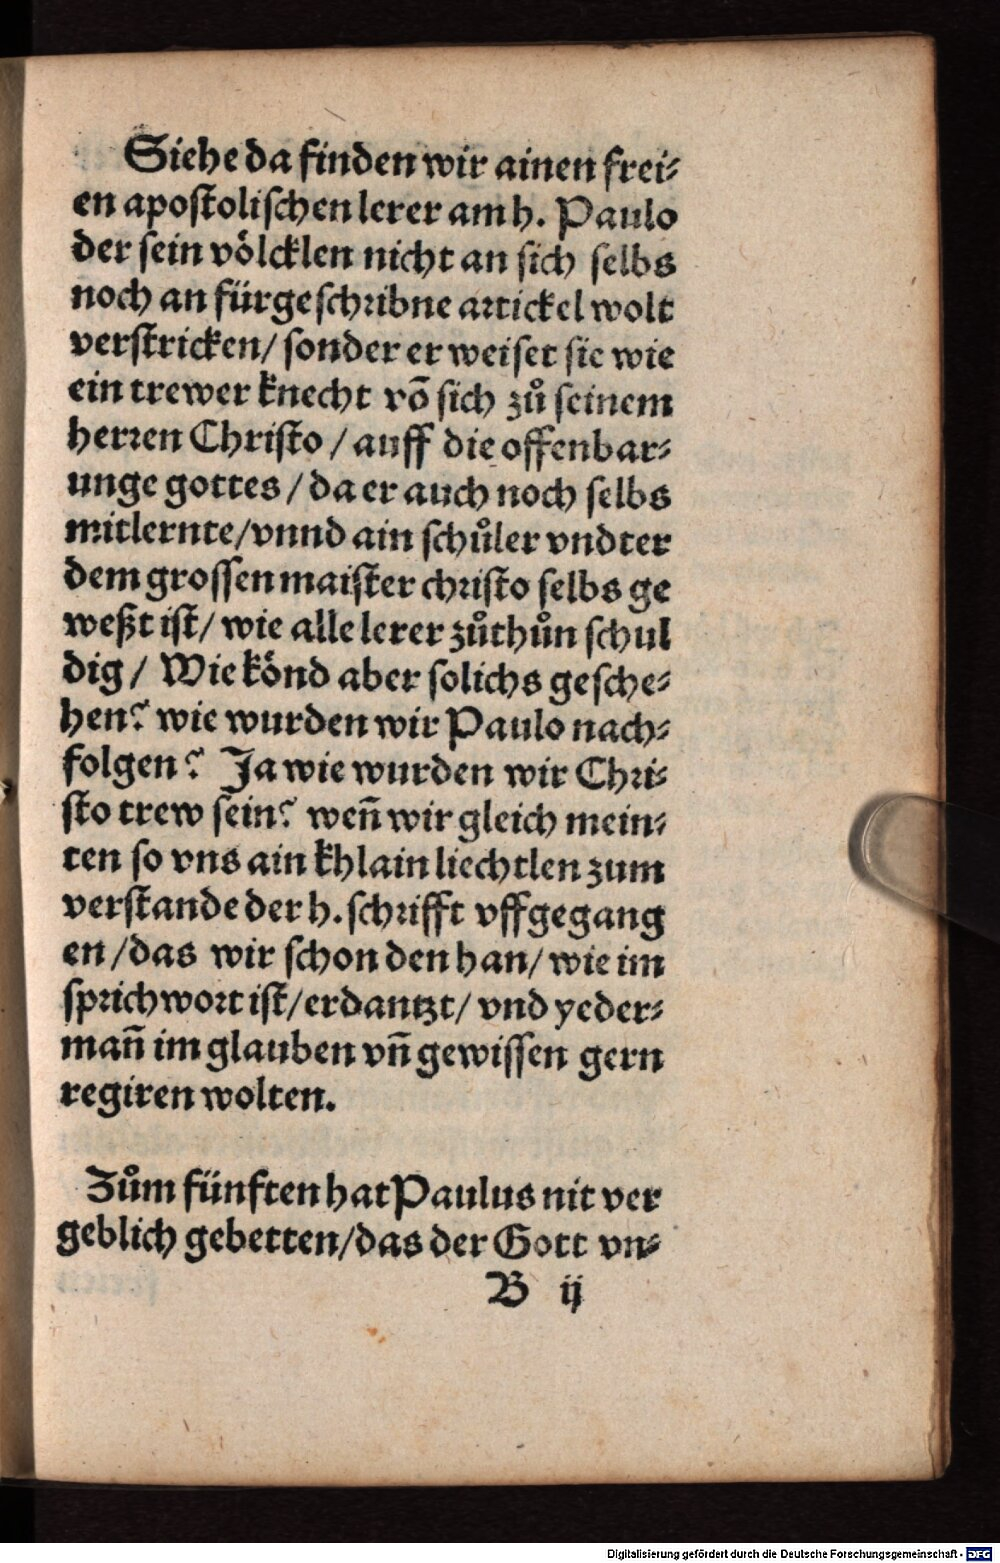 Siehe da finden wir ainen frei⸗
en apostolischen lerer am h. Paulo
der sein völcklen nicht an sich selbs
noch an fürgeschribne artickel wolt
verstricken/ sonder er weiset sie wie
ein trewer knecht võ sich zů seinem
herren Christo / auff die offenbar⸗
unge gottes / da er auch noch selbs
mitlernte/vnnd ain schůler vndter
dem grossen maister christo selbs ge
weßt ist/ wie alle lerer zůthůn schul
dig / Wie könd aber solichs gesche⸗
hen? wie wurden wir Paulo nach⸗
folgen? Ja wie wurden wir Chri⸗
sto trew sein? weñ wir gleich mein⸗
ten so vns ain khlain liechtlen zum
verstande der h. schrifft vffgegang
en /das wir schon den han/ wie im
sprichwort ist/erdantzt/ vnd yeder⸗
mañ im glauben vñ gewissen gern
regiren wolten.
Zům fünften hat Paulus nit ver
geblich gebetten/das der Gott vn⸗
B ij
Digitalisierung gefördert durch die Deutsche Forschungsgemeinschaft - DFG